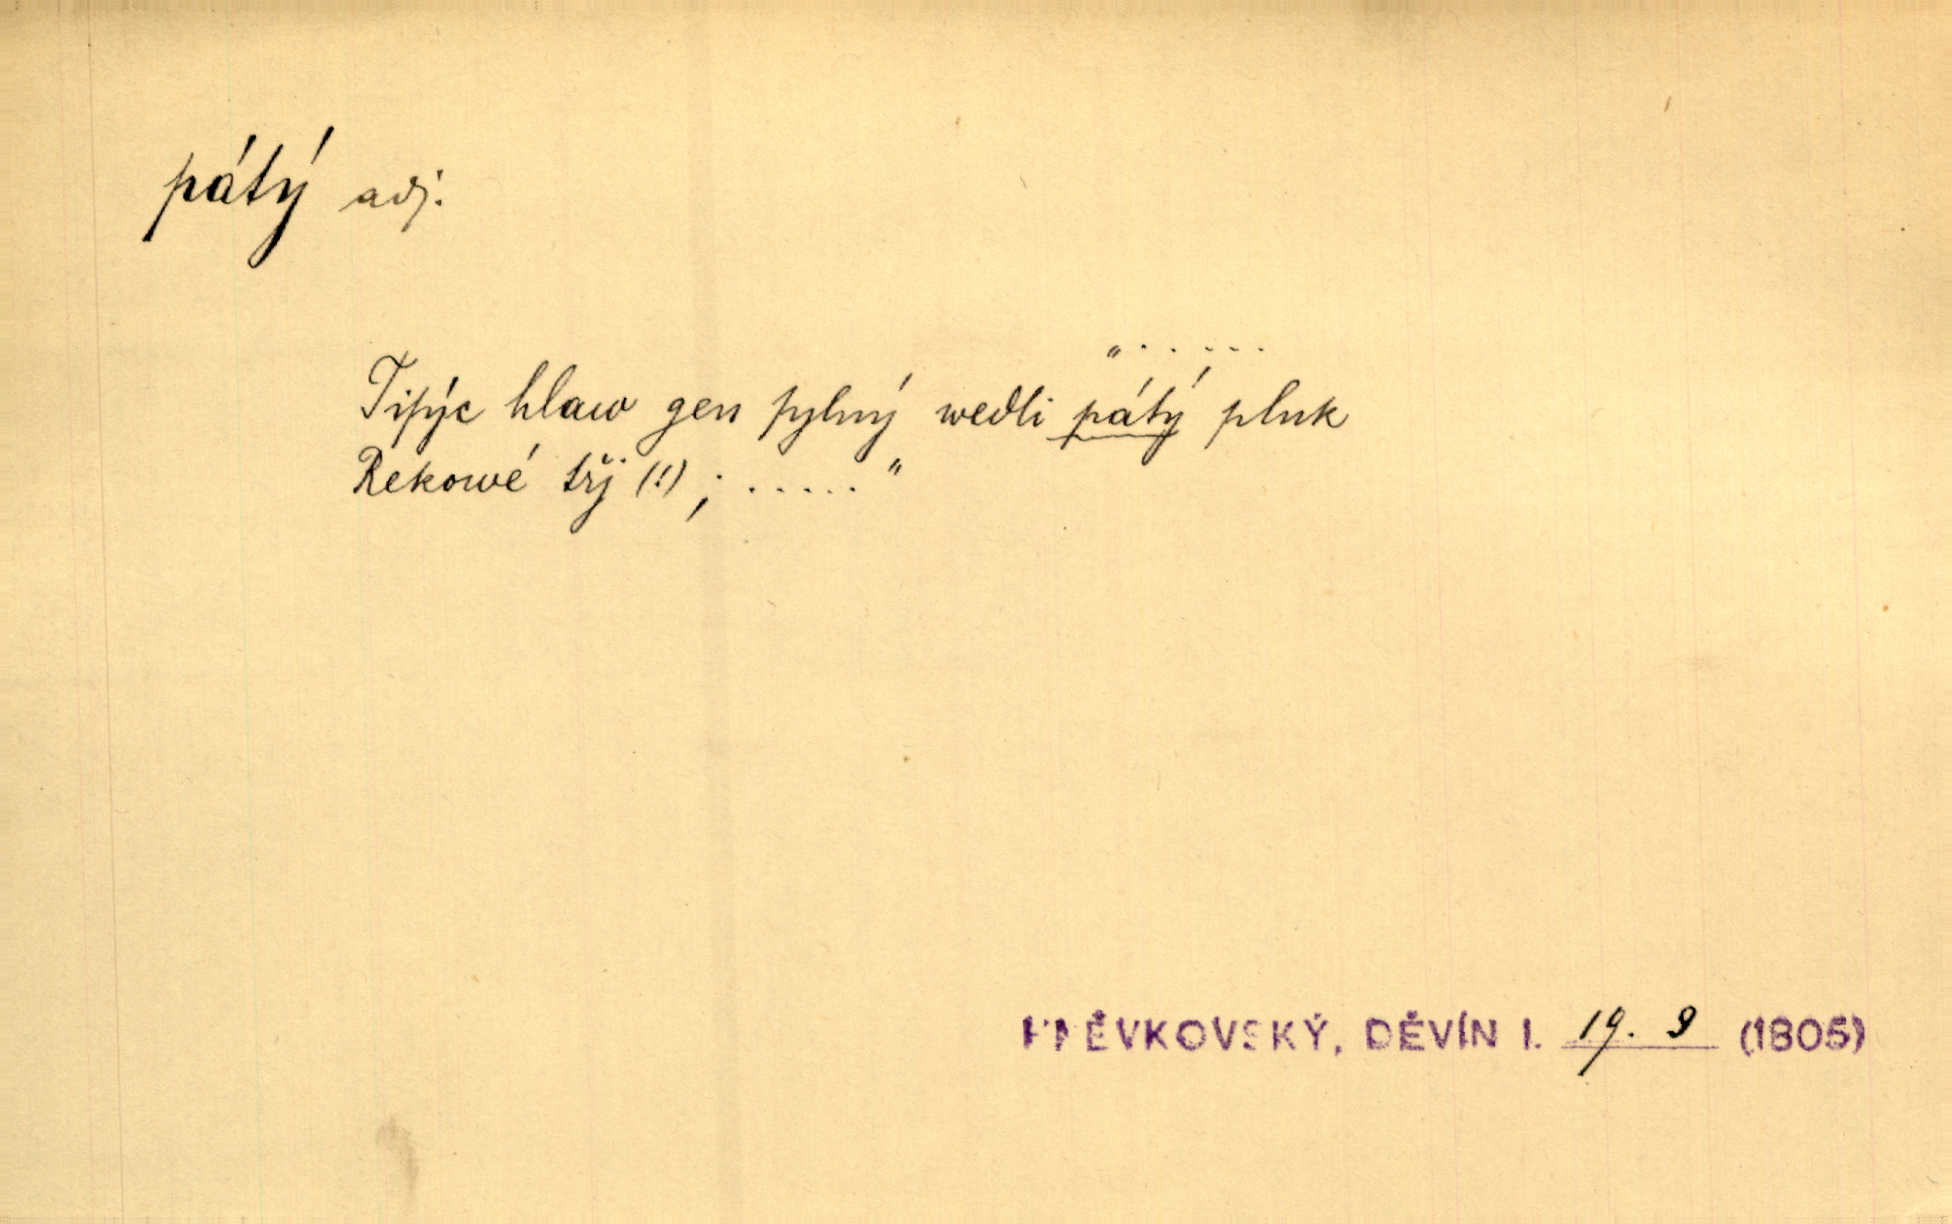 pátý adj.
„ . . . . . .
Tiſýc hlaw gen ſylný wedli pátý pluk
Rekowé třj (!) ; . . . . . "
HNĚVKOVSKÝ, DĚVÍN I. 19. 9 (1805)